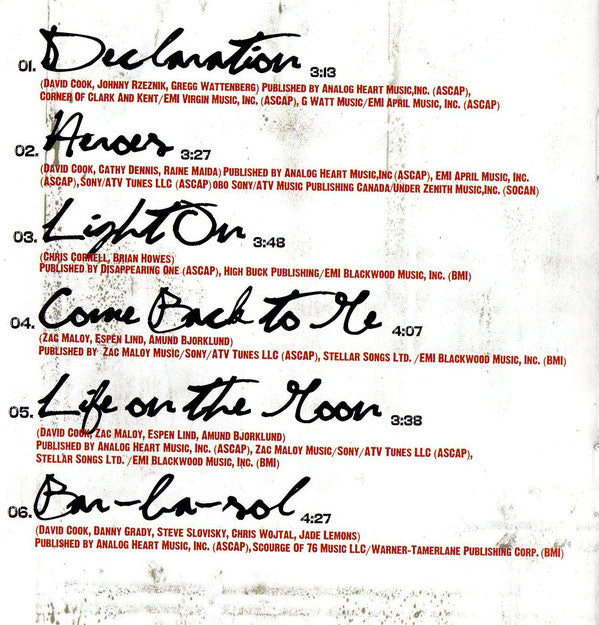 01. Declaration 3:13
(David Cook, Johnny Rzeznik, Gregg Wattenberg) Published by Analog Heart Music,Inc. (ASCAP),
Corner of Clark and Kent/EMI Virgin Music, Inc. (ASCAP), G Watt Music/EMI April Music, Inc. (ASCAP)
02. Heroes 3:27
(David Cook, Cathy Dennis, Raine Maida) Published by Analog Heart Music,Inc (ASCAP), EMI April Music, Inc.
(ASCAP),Sony/ATV Tunes LLC (ASCAP) obo Sony/ATV Music Publishing Canada/Under Zenith Music,Inc. (SOCAN)
03. Light On 3:48
(Chris Cornell, Brian Howes)
Published by Disappearing One (ASCAP), High Buck Publishing/EMI Blackwood Music, Inc. (BMI)
04. Come Back to Me 4:07
(Zac Maloy, Espen Lind, Amund Bjorklund)
Published by Zac Maloy Music/Sony/ATV Tunes LLC (ASCAP), Stellar Songs Ltd. /EMI Blackwood Music, Inc. (BMI)
05. Life on the Moon 3:38
(David Cook, Zac Maloy, Espen Lind, Amund Bjorklund)
Published by Analog Heart Music, Inc. (ASCAP), Zac Maloy Music/Sony/ATV Tunes LLC (ASCAP),
Stellar Songs Ltd. /EMI Blackwood Music, Inc. (BMI)
06. Bar-ba-sol 4:27
(David Cook, Danny Grady, Steve Slovisky, Chris Wojtal, Jade Lemons)
Published by Analog Heart Music, Inc. (ASCAP),Scourge Of 76 Music LLC/Warner-Tamerlane Publishing Corp. (BMI)